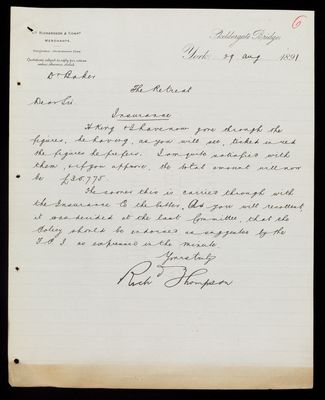 6
Richardson & Compy
MERCHANTS.
Quotations subject to reply per return
unless otherwise stated.
Skeldergate Bridge,
York, 29 Aug 1891
Dr Baker
The Retreat
Dear Sir
Insurance
H King & I have now gone through the
figures, he having, as you will see, ticked in red
the figures he prefers. I am quite satisfied with
them, & if you approve, the total amount will now
be £35775.
The sooner this is carried through with
the Insurance Co the better. As you will recollect
it was decided at the last Committee, that the
Policy should be endorsed as suggested by the
as expressed in the minute.
Yours truly
Richd Thompson